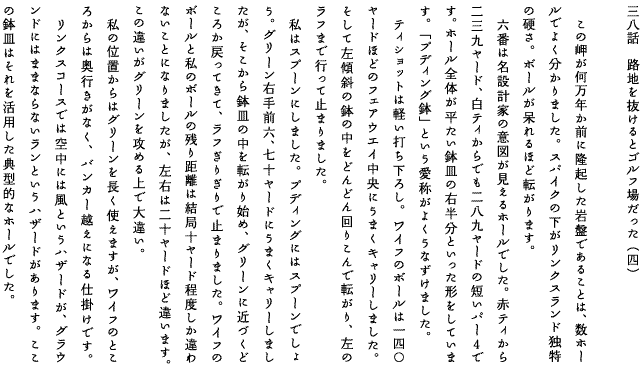 三八話　路地を抜けるとゴルフ場だった（四）
　この岬が何万年か前に隆起した岩盤であることは、数ホー
ルでよく分かりました。スパイクの下がリンクスランド独特
の硬さ。ボールが呆れるほど転がります。
　六番は名設計家の意図が見えるホールでした。赤ティから
二三九ヤード、白ティからでも二八九ヤードの短いパー４で
す。ホール全体が平たい鉢皿の右半分といった形をしていま
す。「プディング鉢」という愛称がよくうなずけました。
　ティショットは軽い打ち下ろし。ワイフのボールは一四〇
ヤードほどのフェアウエイ中央にうまくキャリーしました。
そして左傾斜の鉢の中をどんどん回りこんで転がり、左の
ラフまで行って止まりました。
　私はスプーンにしました。プディングにはスプーンでしょ
う。グリーン右手前六、七十ヤードにうまくキャリーしまし
たが、そこから鉢皿の中を転がり始め、グリーンに近づくど
ころか戻ってきて、ラフぎりぎりで止まりました。ワイフの
ボールと私のボールの残り距離は結局十ヤード程度しか違わ
ないことになりましたが、左右は二十ヤードほど違います。
この違いがグリーンを攻める上で大違い。
　私の位置からはグリーンを長く使えますが、ワイフのとこ
ろからは奥行きがなく、バンカー越えになる仕掛けです。
　リンクスコースでは空中には風というハザードが、グラウ
ンドにはままならないランというハザードがあります。ここ
の鉢皿はそれを活用した典型的なホールでした。